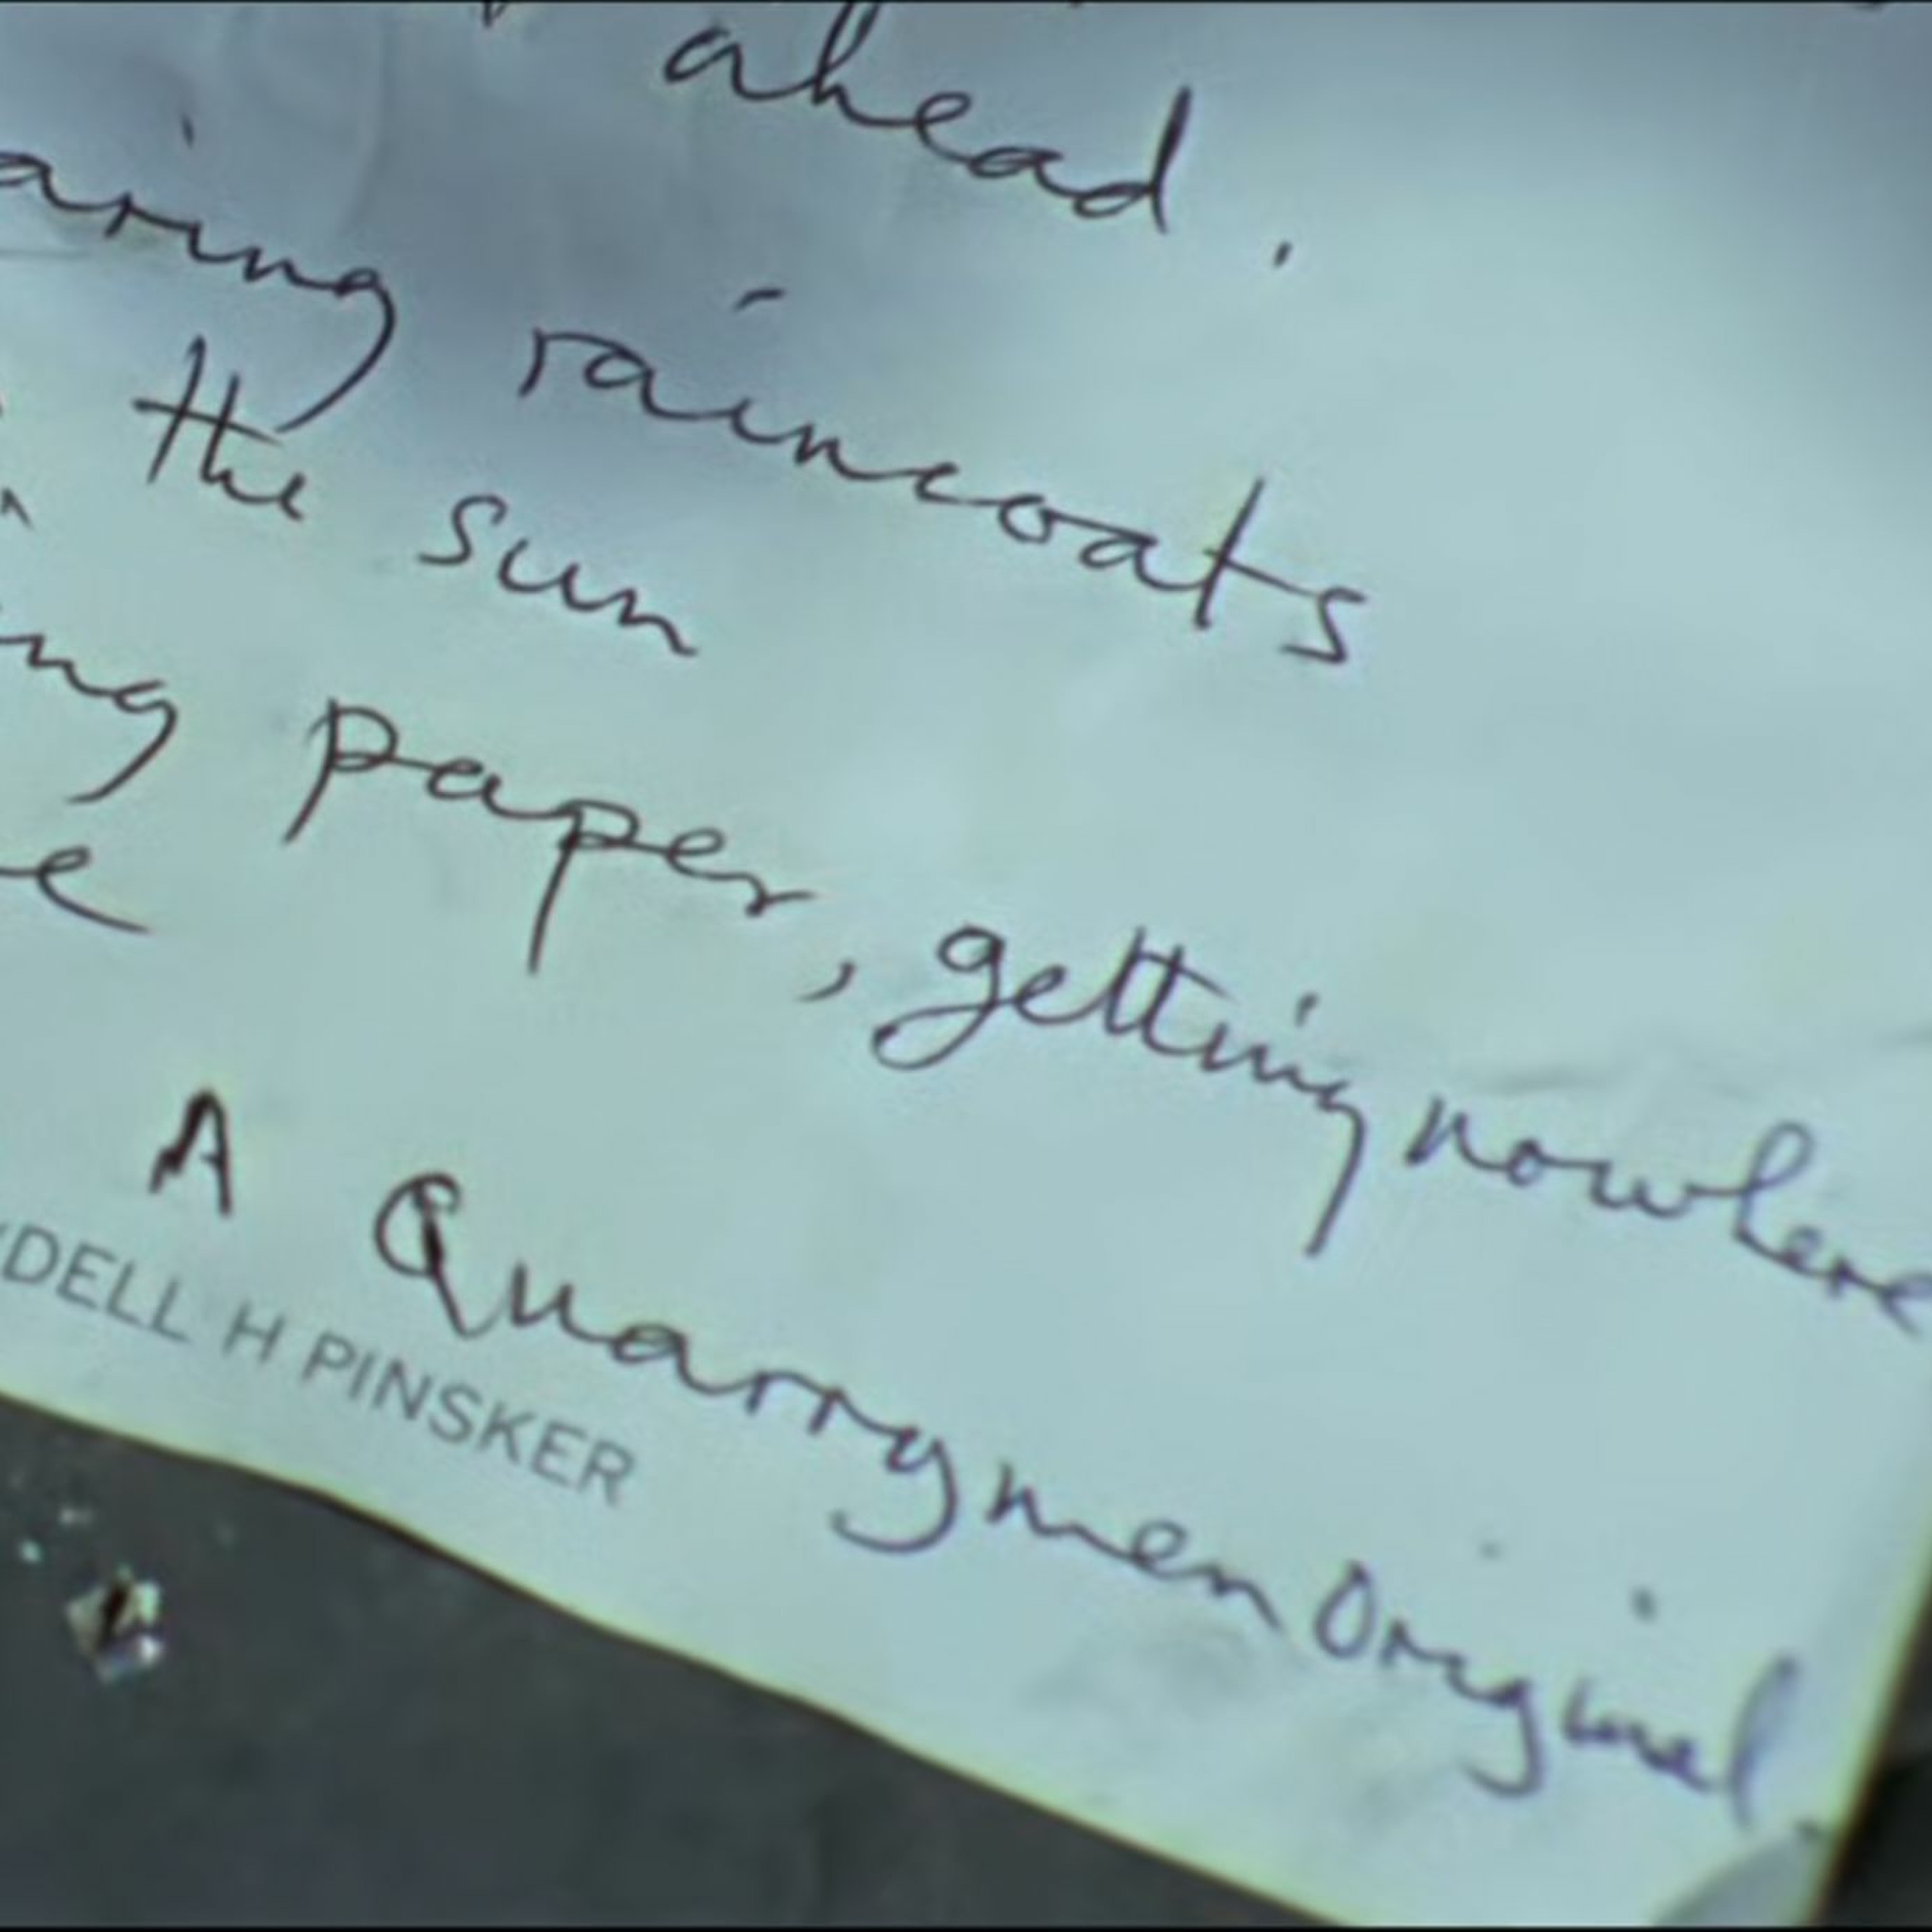 ahead.
aring raincoats
the sun
ng paper, getting nowhere
e
A Quarrymen Original.
DELL H PINSKER